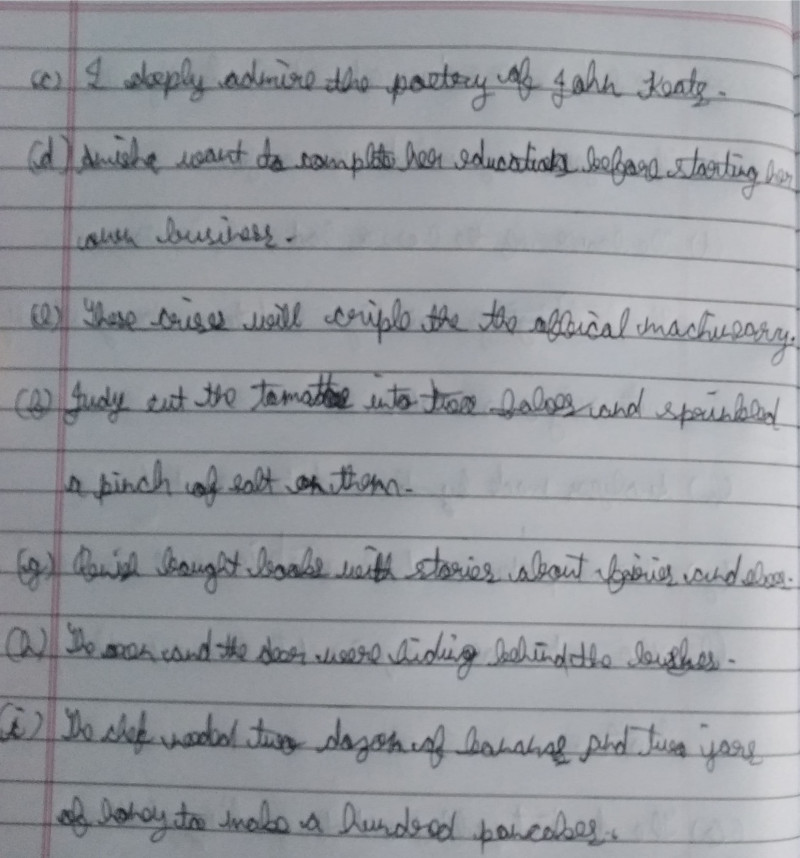 (c) I deeply admire the poetery of John Keats.
(d) Anisha want to complete her education before starting her
own business.
(e) These crises will criple the the offical machineary.
(f) Judy cut the tomatoe into two halves and sprinkled
a pinch of salt on them.
(g) bought books with stories about fairies and elves.
(h) The and the deer were hiding behind the bushes.
(i) The chef needed two dozen of bananas and two jars
of honey to make a hundred pancakes.